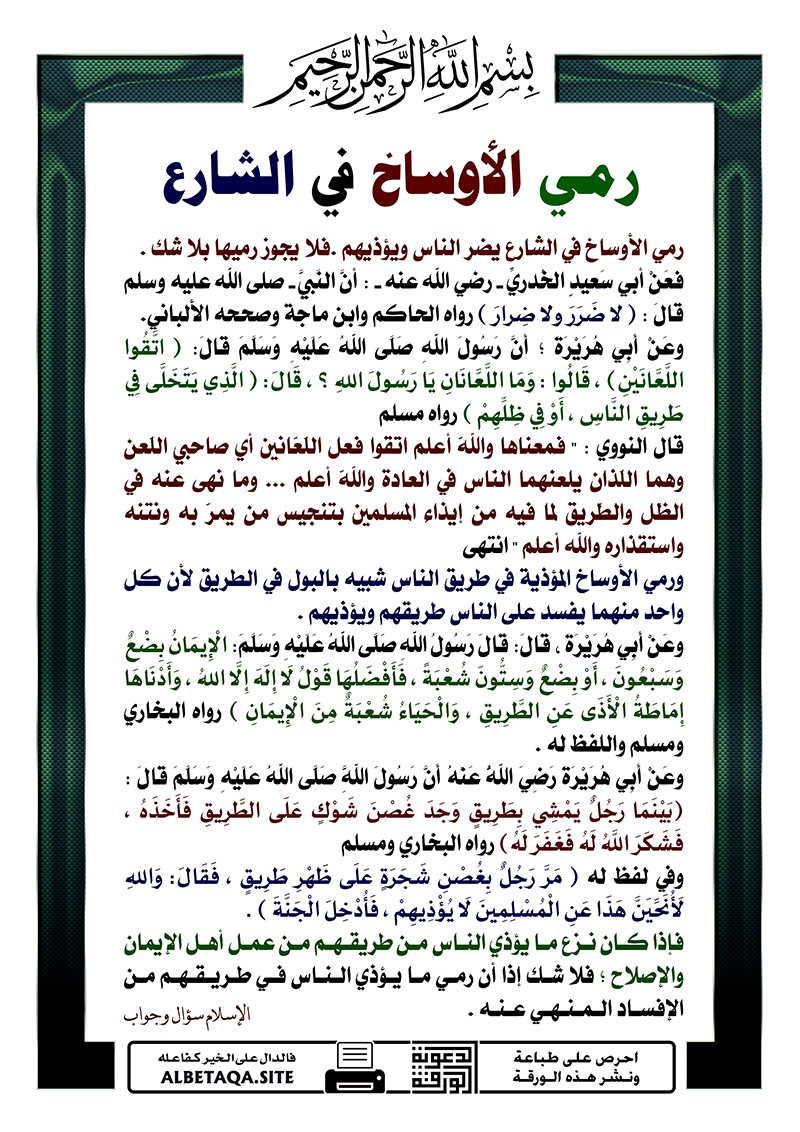 بِسْمِ اللَّهِ الرَّحْمَنِ الرَّحِيمِ
رمي الأوساخ في الشارع
رمي الأوساخ في الشارع يضر الناس ويؤذيهم .فلا يجوز رميها بلا شك .
فعَنْ أبي سَعيدٍ الخُدريِّ ـ رضي الله عنه ـ : أنَّ النَّبيَّ ـ صلى الله عليه وسلم
قالَ : ( لا ضَرَرَ ولا ضِرارَ ) رواه الحاكم وابن ماجة وصححه الألباني.
وعَنْ أَبِي هُرَيْرَةَ ؛ أنَّ رَسُولَ اللهِ صَلَّى اللهُ عَلَيْهِ وَسَلَّمَ قَالَ: ( اتَّقُوا
اللَّعَّانَيْنِ ) ، قَالُوا : وَمَا اللَّعَّانَانِ يَا رَسُولَ اللهِ ؟ ، قَالَ: ( الَّذِي يَتَخَلَّى فِي
طَرِيقِ النَّاسِ ، أَوْ فِي ظِلِّهِمْ ) رواه مسلم
قال النووي : " فمعناها واللهَ أعلم اتقوا فعل اللعَانين أي صاحبي اللعن
وهما اللذان يلعنهما الناس في العادة واللهَ أعلم ... وما نهى عنه في
الظل والطريق لما فيه من إيذاء المسلمين بتنجيس من يمرَ به ونتنه
واستقذاره والله أعلم " انتهى
ورمي الأوساخ المؤذية في طريق الناس شبيه بالبول في الطريق لأن كل
واحد منهما يفسد على الناس طريقهم ويؤذيهم .
وعَنْ أَبِي هُرَيْرَةَ ، قَالَ: قَالَ رَسُولُ اللهِ صَلَّى اللهُ عَلَيْهِ وَسَلَّمَ: الْإِيمَانُ بِضْعٌ
وَسَبْعُونَ ، أَوْ بِضْعٌ وَسِتُّونَ شُعْبَةً ، فَأَفْضَلُهَا قَوْلُ لَا إِلَهَ إِلَّا اللهُ ، وَأَدْنَاهَا
إِمَاطَةُ الْأَذَى عَنِ الطَّرِيقِ ، وَالْحَيَاءُ شُعْبَةٌ مِنَ الْإِيمَانِ ) رواه البخاري
ومسلم واللفظ له .
وعَنْ أَبِي هُرَيْرَةَ رَضِيَ اللَّهُ عَنْهُ أنَّ رَسُولَ اللَّهِ صَلَّى اللهُ عَلَيْهِ وَسَلَّمَ قَالَ :
(بَيْنَمَا رَجُلٌ يَمْشِي بِطَرِيقٍ وَجَدَ غُصْنَ شَوْكٍ عَلَى الطَّرِيقِ فَأَخَذَهُ ،
فَشَكَرَ اللَّهُ لَهُ فَغَفَرَ لَهُ ) رواه البخاري ومسلم
وفي لفظ له ( مَرَّ رَجُلٌ بِغُصْنِ شَجَرَةٍ عَلَى ظَهْرِ طَرِيقٍ ، فَقَالَ: وَاللهِ
لَأُنَحِّيَنَّ هَذَا عَنِ الْمُسْلِمِينَ لَا يُؤْذِيهِمْ ، فَأُدْخِلَ الْجَنَّةَ ) .
فإذا كان نزع ما يؤذي الناس من طريقهم من عمل أهل الإيمان
والإصلاح ؛ فلا شك إذا أن رمي ما يؤذي الناس في طريقهم من
الإفساد المنهي عنه .
الإسلام سؤال وجواب
احرص على طباعة
ونشر هذه الورقة
الورقة الدعوية
فالدال على الخير كفاعله
ALBETAQA.SITE